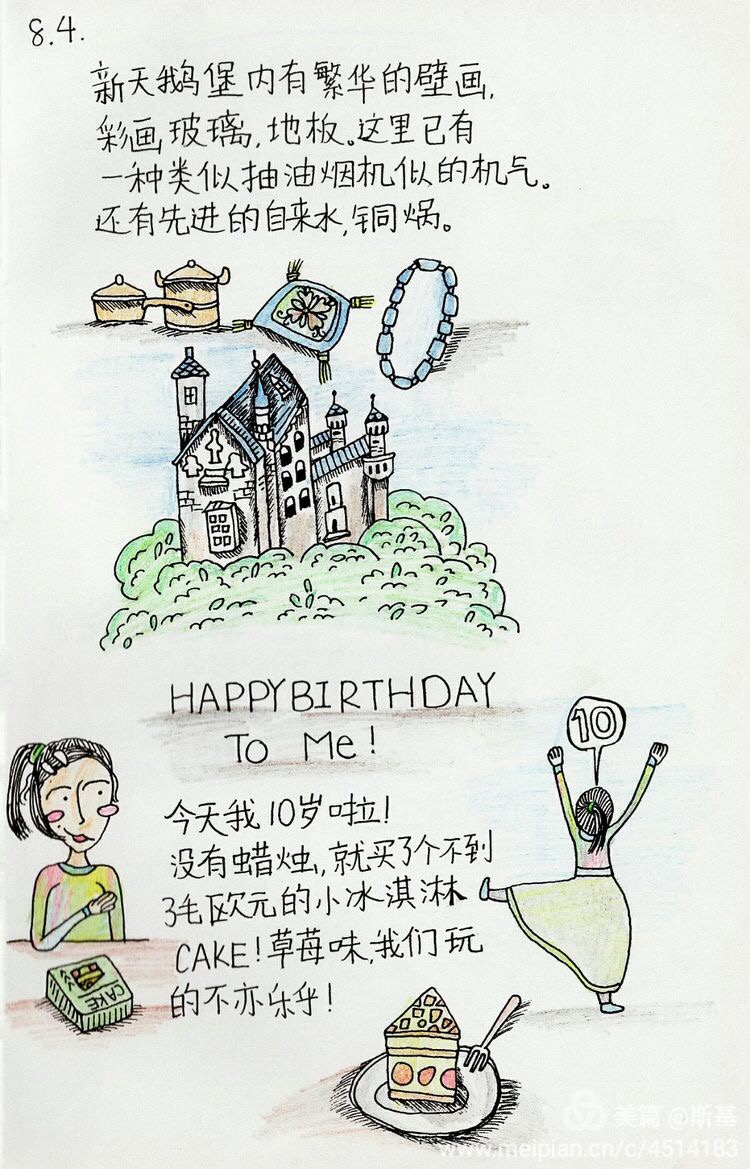 8.4.
新天鹅堡内有繁华的壁画,
彩画玻璃,地板。这里已有
一种类似抽油烟机似的机气。
还有先进的自来水,铜煱。
HAPPY BIRTHDAY
To Me!
10
今天我10岁啦!
没有蜡烛,就买了个不到
3毛欧元的小冰淇淋
CAKE!草莓味,我们玩
的不亦乐乎!
CAKE
美篇 @斯基
www.meipian.cn/c/4514183